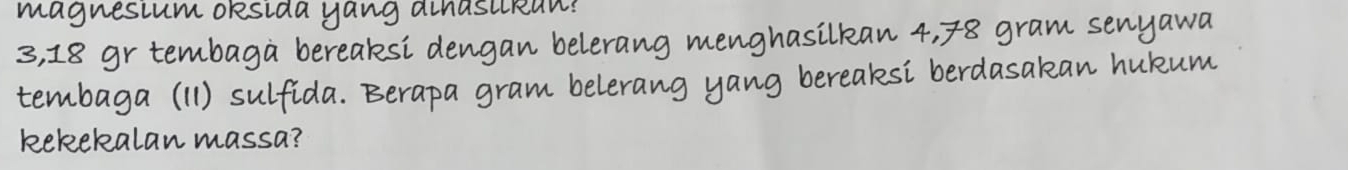 magnesium oksida yang dihasilkan?
3,18 gr tembaga bereaksi dengan belerang menghasilkan 4,78 gram senyawa
tembaga (11) sulfida. Berapa gram belerang yang bereaksi berdasakan hukum
kekekalan massa?